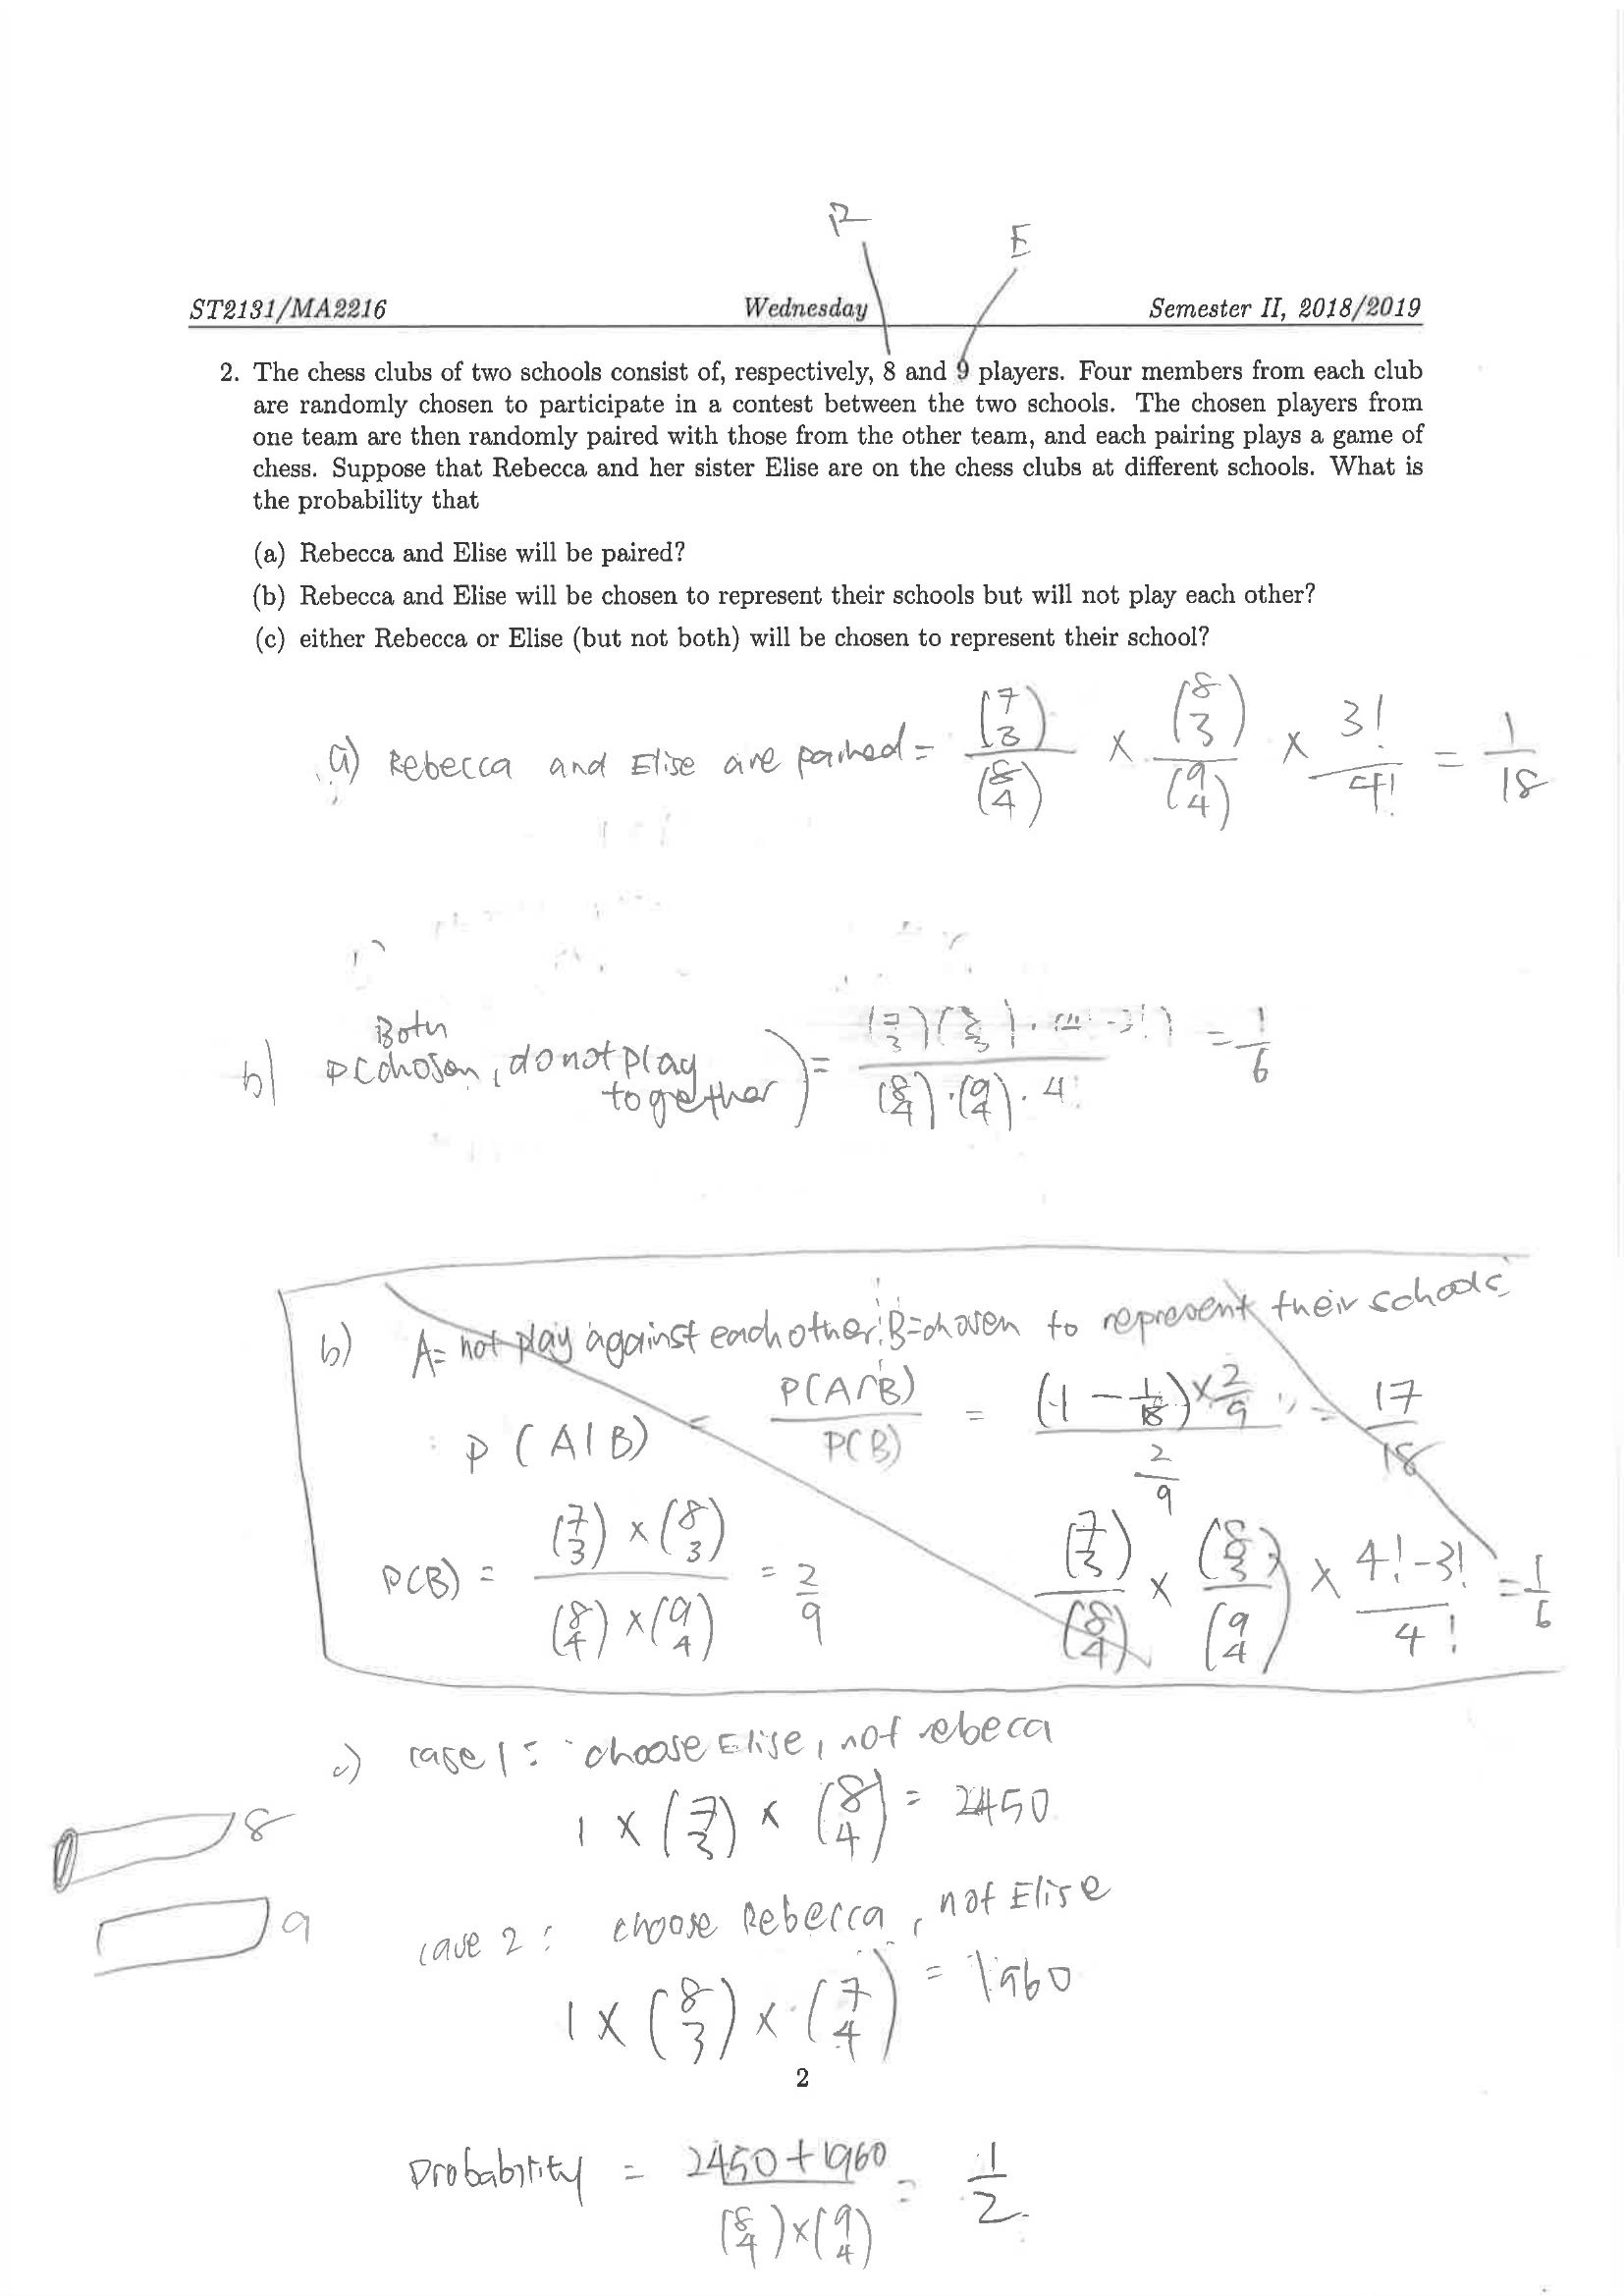 R
E
ST2131/MA2216 Wednesday Semester II, 2018/2019
2. The chess clubs of two schools consist of, respectively, 8 and 9 players. Four members from each club
are randomly chosen to participate in a contest between the two schools. The chosen players from
one team are then randomly paired with those from the other team, and each pairing plays a game of
chess. Suppose that Rebecca and her sister Elise are on the chess clubs at different schools. What is
the probability that
(a) Rebecca and Elise will be paired?
(b) Rebecca and Elise will be chosen to represent their schools but will not play each other?
(c) either Rebecca or Elise (but not both) will be chosen to represent their school?
a) Rebecca and Elise are paired = (7 3)/(8 4) × (8 3)/(9 4) × 3!/4! = 1/18
b) P(Both chosen, do not play together) = / (8 4)·(9 4)·4! = 1/6
b) A= not play against each other: B=chosen to represent their schools
P(A|B) = P(A∩B)/P(B) = (1 − 1/18)×2/9 / 2/9 = 17/18
P(B) = (7 3)×(8 3) / (8 4)×(9 4) = 2/9
(7 3)/(8 4) × (8 3)/(9 4) × 4!-3!/4! = 1/6
c) case 1: choose Elise, not rebeca
1 × (7 3) × (8 4) = 2450
8
9
case 2: choose Rebecca, not Elise
1 × (8 3) × (7 4) = 1960
2
Probability = 2450+1960 / (8 4)×(9 4) = 1/2